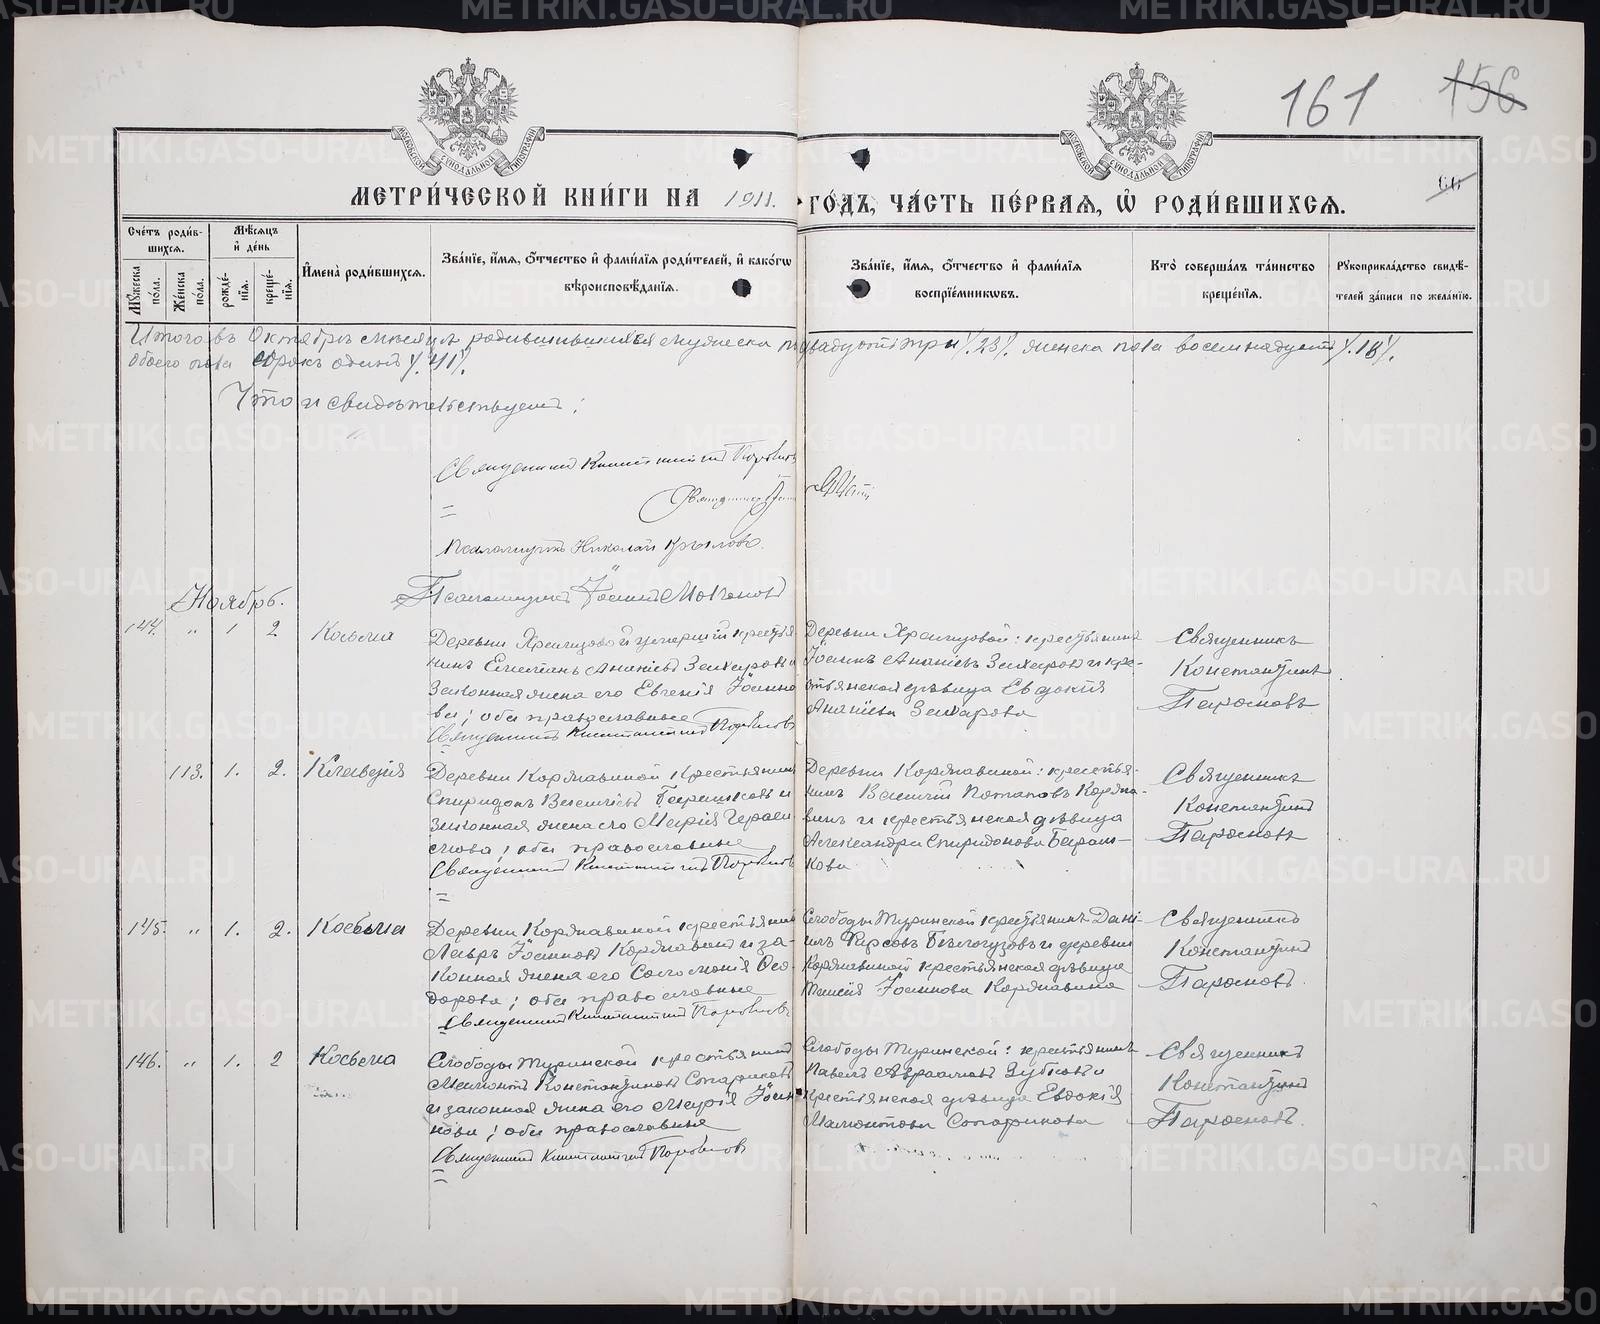 161
156
66
МЕТРИ́ЧЕСКОЙ КНИ́ГИ НА 1911. ГО́ДЪ, ЧА́СТЬ ПЕ́РВАѦ, Ѽ РОДИ́ВШИХСѦ.
Сче́тъ роди́в-
шихсѧ.
Мѣ́сѧцъ
и҆ де́нь
Мꙋ́жеска по́ла.
Же́нска по́ла.
рожде́-
нїѧ.
креще́-
нїѧ.
И҆мена̀ роди́вшихсѧ.
Зва́нїе, и҆́мѧ, ѻ҆́тчество и҆ фамилїѧ роди́телей, и҆ како́гѡ
вѣроисповѣ́данїѧ.
Зва́нїе, и҆́мѧ, ѻ҆́тчество и҆ фами́лїѧ
воспрїе́мникѡвъ.
Кто̀ соверша́лъ та́инство
креще́нїѧ.
Рꙋкоприкла́дство свидѣ́-
телей за́писи по жела́нїю.
Итого въ Октябрѣ мѣсяцѣ родившихся мужеска пола двадцать три /.23/. женска пола восемнадцать /.18/.
обоего пола сорокъ одинъ /. 41/.
Что и свидѣтельствуемъ:
Священникъ Константинъ
Священникъ
Псаломщикъ Николай Крыловъ.
Псаломщикъ Іоаннъ Молчановъ
Ноябрь.
144. " 1 2 Косьма
Деревни Храмцовой умерший крестья-
нинъ Емельянъ Ананіевъ Захаровъ и
законная жена его Евгенія Іоанно-
ва; оба православные
Священникъ Константинъ
Деревни Храмцовой: крестьянинъ
Іоаннъ Ананіевъ Захаровъ и кре-
стьянская дѣвица Евдокія
Ананіева Захарова
Священникъ
Константинъ
113. 1. 2. Клавдія
Деревни Корявиной крестьянинъ
Спиридонъ Барашковъ и
законная жена его Марія Гераси-
мова; оба православные
Священникъ Константинъ
Деревни Корявиной: крестья-
нинъ Потаповъ Коряв-
винъ и крестьянская дѣвица
Александра Спиридонова Бараш-
кова
Священникъ
Константинъ
145. " 1. 2. Косьма
Деревни Корявиной крестьянинъ
Лавръ Іоанновъ Корявинъ и за-
конная жена его Соломонія Ѳео-
дорова; оба православные
Священникъ Константинъ
Слободы Туринской крестьянинъ Дані-
илъ Фирсовъ Бѣлогузовъ и деревни
Корявиной крестьянская дѣвица
Таисія Іоаннова Корявина
Священникъ
Константинъ
146. " 1. 2 Косьма
Слободы Туринской крестьянинъ
Мамонтъ Константиновъ Стариковъ
и законная жена его Марія Іоан-
нова; оба православные
Священникъ Константинъ
Слободы Туринской: крестьянинъ
Павелъ Авраамовъ Зубковъ и
крестьянская дѣвица Евдокія
Мамонтова Старикова
Священникъ
Константинъ
METRIKI.GASO-URAL.RU